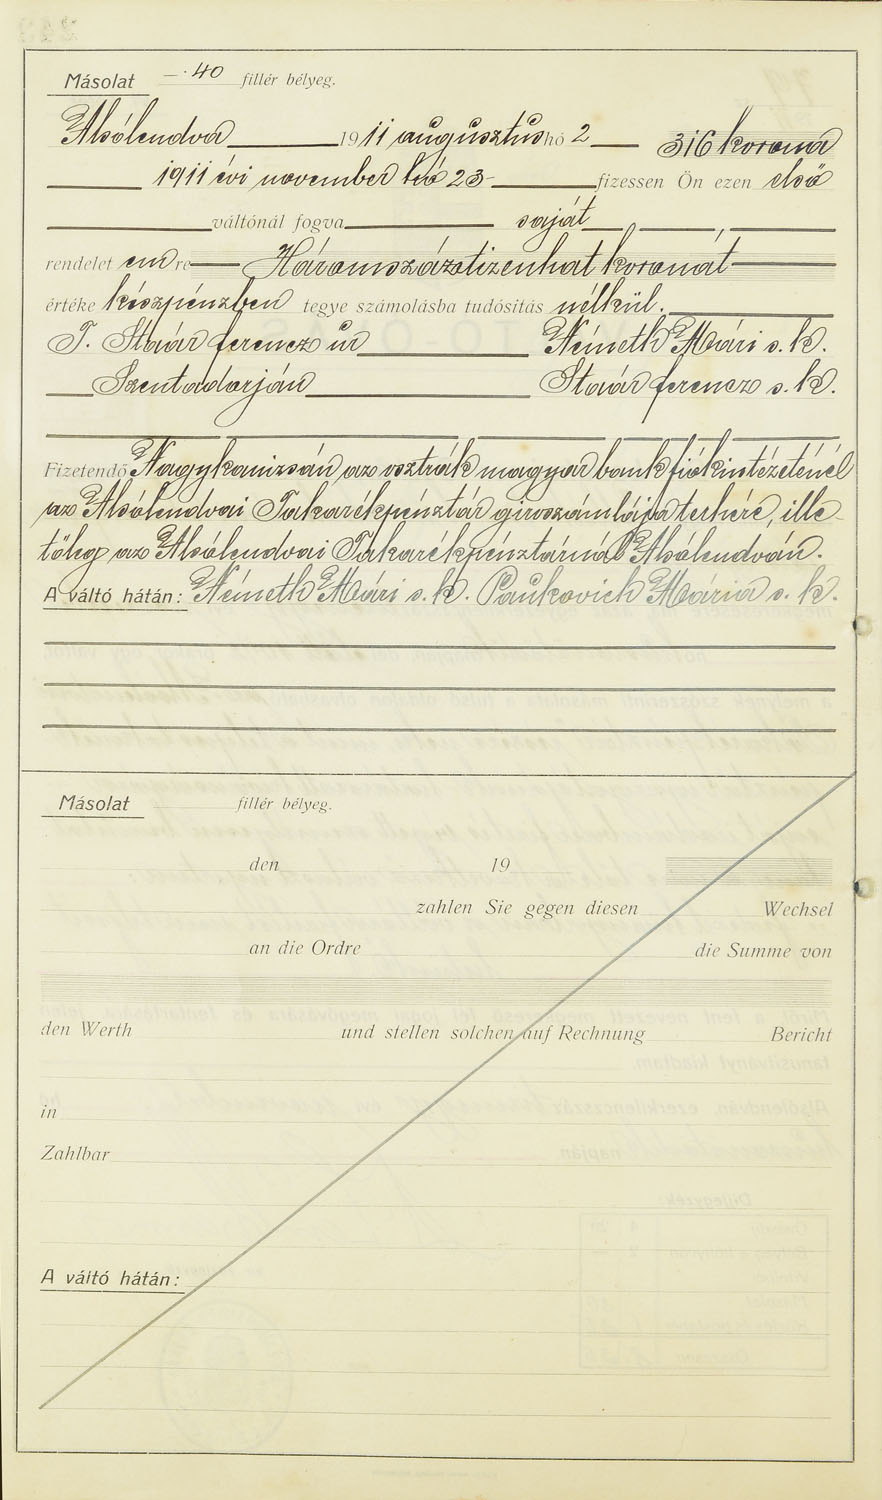 Másolat —·40 fillér bélyeg.
Alsólendva 1911 augusztus hó 2 316 korona
1911 évi november hó 23- fizessen Ön ezen első
váltónál fogva saját ,
rendelet em re Háromszázatizenhat koronát
értéke készpénzben tegye számolásba tudósítás nélkül.
T. Staár ferencz úr Németh Mári s. k.
Szentadorján Staár ferencz s. k.
Fizetendő Nagykanizsán az osztrák magyar bank fiókintézeténél
az Alsólendvai Takarékpénztár giroszámlája terhére, ille-
tőleg az Alsólendvai Takarékpénztárnál Alsólendván.
A váltó hátán: Németh Mári s. k. Paukovich Mária s. k.
Másolat fillér bélyeg.
den 19
zahlen Sie gegen diesen Wechsel
an die Ordre die Summe von
den Werth und stellen solchen auf Rechnung Bericht
in
Zahlbar
A váltó hátán: